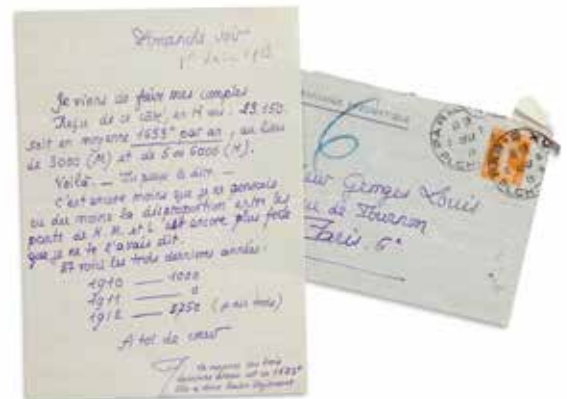 Dimanche soir
Je viens de faire mes comptes
Reçu de ce côté, en 14 ans : 23.150
soit en moyenne 1653ᶠ par an, au lieu
de 3000 (M) et de 5 ou 6000 (H).
Voilà — Tu peux le dire —
C'est encore moins que je ne pensais
ou du moins la disproportion entre les
parts de H. M. et L est encore plus forte
que je ne te l'avais dit.
Et voici les trois dernières années :
1910 — 1000
1911 — 0
1912 — 2750
A toi de cœur
La moyenne des trois
dernières années est de
Monsieur Georges Louis
rue de Tournon
Paris. 6ᵉ
6
PARIS